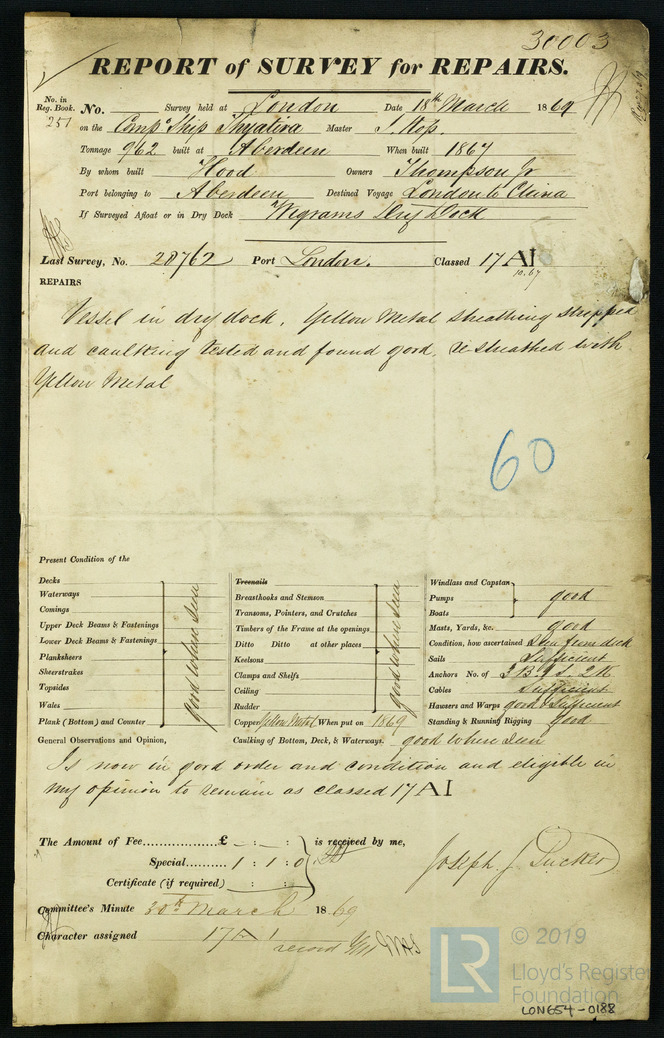 30003
REPORT of SURVEY for REPAIRS.
No. in Reg. Book. No. Survey held at London Date 18th March 1869
251 on the Comp Ship Thyatira Master
Tonnage 962 built at Aberdeen When built 1867
By whom built Hood Owners Thompson Jr
Port belonging to Aberdeen Destined Voyage London to China
If Surveyed Afloat or in Dry Dock Wigrams Dry Dock
Last Survey, No. 20762 Port London. Classed 17 A1
10.67
REPAIRS
Vessel in dry dock. Yellow Metal sheathing stripped
and caulking tested and found good, resheathed with
Yellow Metal
60
Present Condition of the
Decks
Waterways
Comings
Upper Deck Beams & Fastenings
Lower Deck Beams & Fastenings
Planksheers
Sheerstrakes
Topsides
Wales
Plank (Bottom) and Counter
good where seen
Treenails
Breasthooks and Stemson
Transoms, Pointers, and Crutches
Timbers of the Frame at the openings
Ditto Ditto at other places
Keelsons
Clamps and Shelfs
Ceiling
Rudder
good where seen
Copper Yellow Metal When put on 1869
Windlass and Capstan
Pumps
Boats
good
Masts, Yards, &c. good
Condition, how ascertained Seen from deck
Sails Sufficient
Anchors No. of 3 B. 1 S. 2 K
Cables Sufficient
Hawsers and Warps good & Sufficient
Standing & Running Rigging good
General Observations and Opinion, Caulking of Bottom, Deck, & Waterways. good where seen
Is now in good order and condition and eligible in
my opinion to remain as classed 17 A1
The Amount of Fee..................£ — : — : is received by me,
Special........... 1 : 1 : 0
Certificate (if required) — : :
Joseph J Tucker
Committee's Minute 30th March 1869
Character assigned 17 A 1
record
LR
© 2019
Lloyd's Register
Foundation
LON654-0188